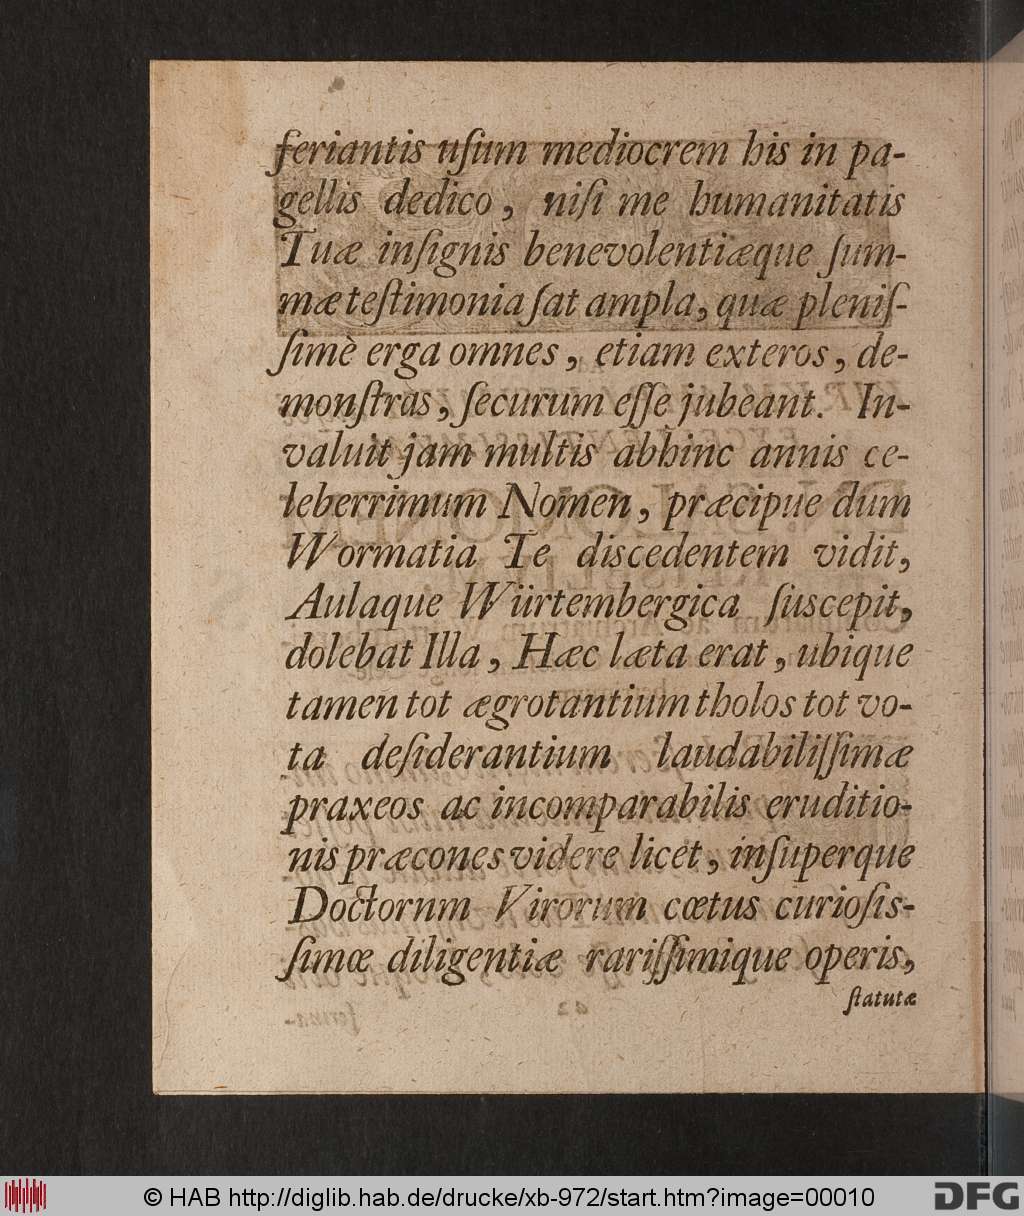 feriantis uſum mediocrem his in pa-
gellis dedico, niſi me humanitatis
Tuæ inſignis benevolentiæque ſum-
mæ teſtimonia ſat ampla, quæ pleniſ-
ſimè erga omnes, etiam exteros, de-
monſtras, ſecurum eſſe jubeant. In-
valuit jam multis abhinc annis ce-
leberrimum Nomen, præcipue dum
Wormatia Te discedentem vidit,
Aulaque Würtembergica ſuscepit,
dolebat Illa, Hæc læta erat, ubique
tamen tot ægrotantium tholos tot vo-
ta deſiderantium laudabiliſſimæ
praxeos ac incomparabilis eruditio-
nis præcones videre licet, inſuperque
Doctornm Virorum cœtus curioſis-
ſimœ diligentiæ rariſſimique operis,
ſtatutæ
© HAB http://diglib.hab.de/drucke/xb-972/start.htm?image=00010
DFG